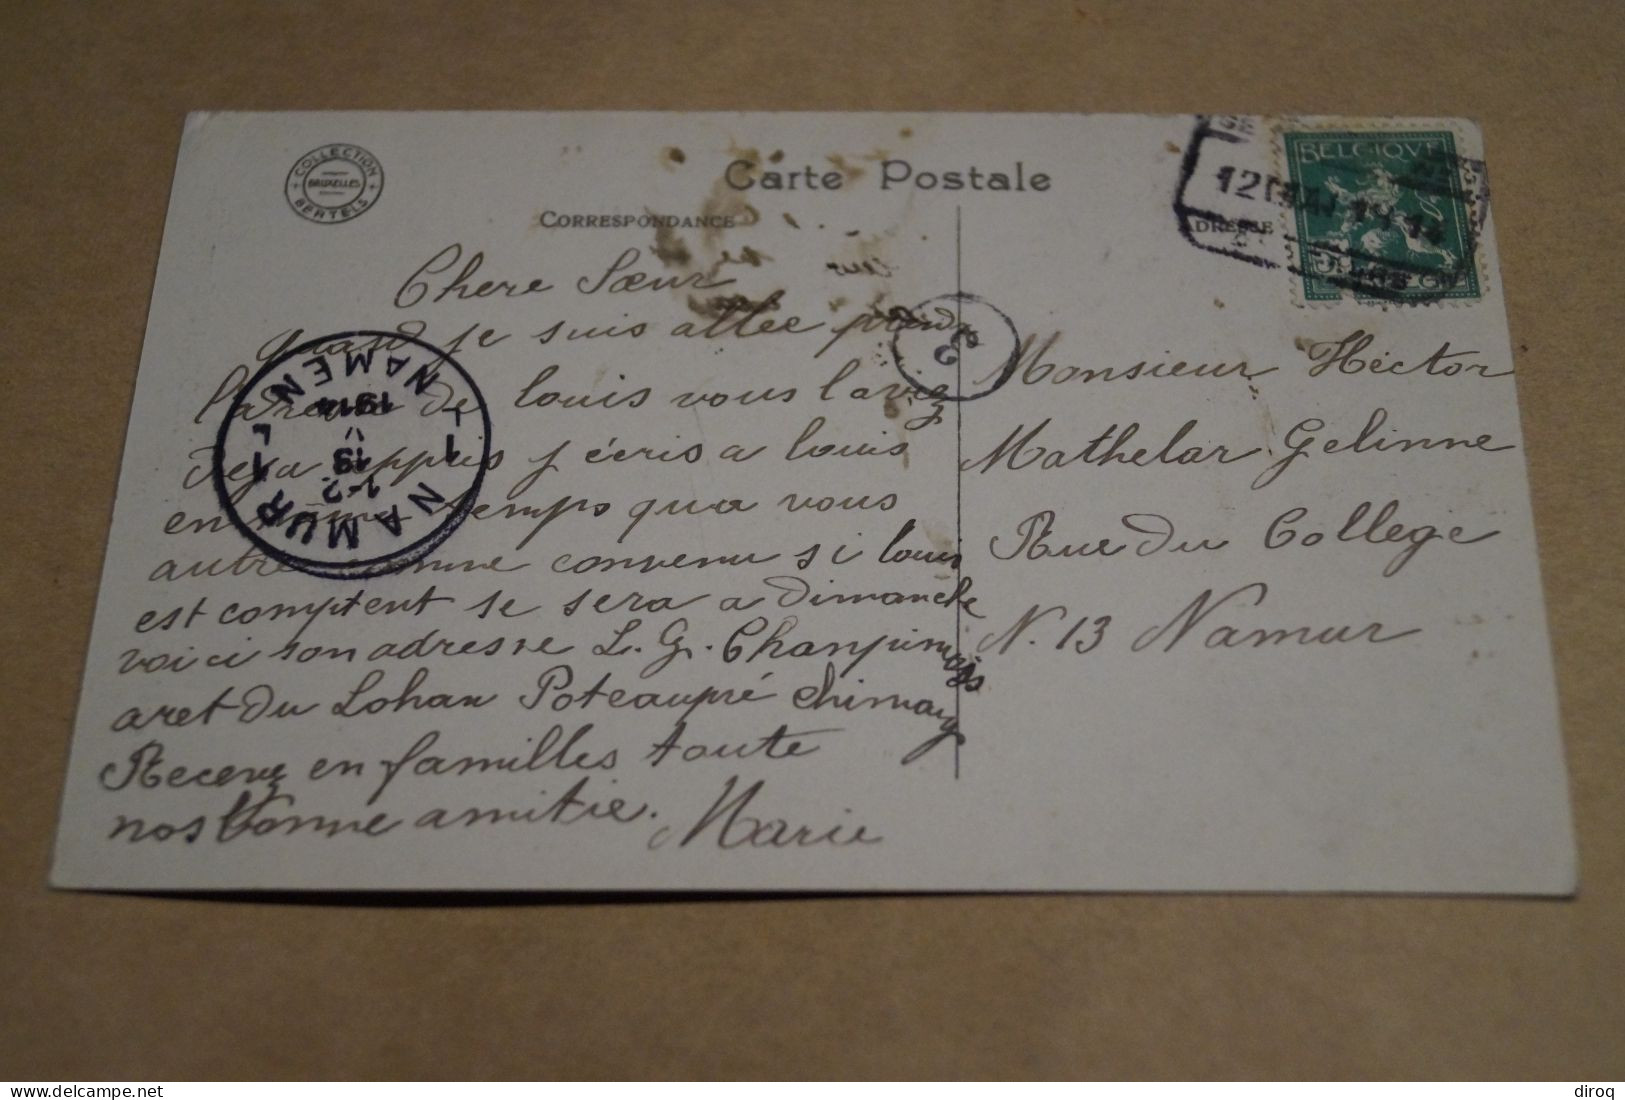 COLLECTION
BRUXELLES
BERTELS
Carte Postale
CORRESPONDANCE
ADRESSE
BELGIQUE
12 MAI 1914
Chere Sœur
quand je suis allee prendre
l'adresse de louis vous l'aviez
deja appris j ecris a louis
en même temps qua vous
autre comme convenu si louis
est comptent se sera a dimanche
voici son adresse L. G. Chanpimngs
aret du Lohan Poteaupré chimay
Recevez en familles toute
nos bonne amitie. Marie
Monsieur Héctor
Mathelar Gelinne
Rue du College
N. 13 Namur
NAMUR 1
1-2
13
V
1914
NAMEN 1
diroq